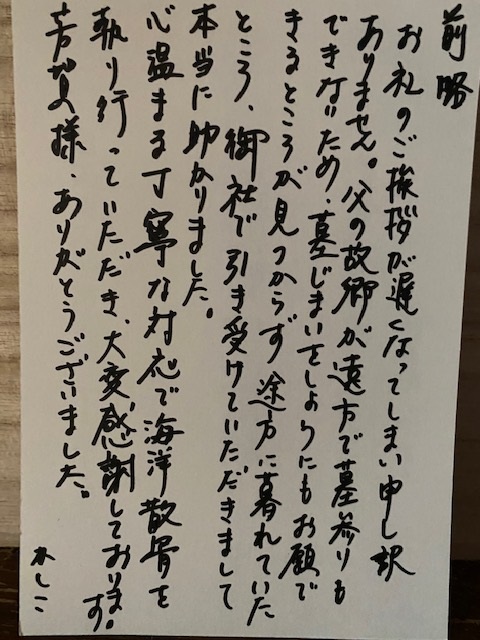 前略
お礼のご挨拶が遅くなってしまい申し訳
ありません。父の故郷が遠方で墓参りも
できないため、墓じまいをしようにもお願で
きるところが見つからず途方に暮れていた
ところ、御社で引き受けていただきまして
本当に助かりました。
心温まる丁寧な対応で海洋散骨を
執り行っていただき、大変感謝しております。
様、ありがとうございました。
かしこ